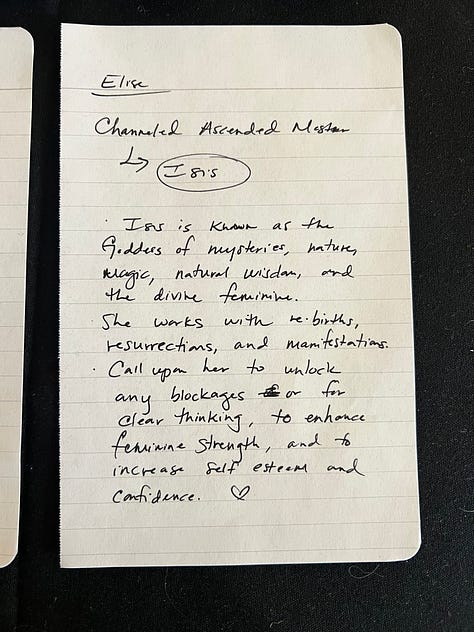 Elise
Channeled Ascended Master
Isis
· Isis is known as the
Goddess of mysteries, nature,
magic, natural wisdom, and
the divine feminine.
She works with re-births,
resurrections, and manifestations.
· Call upon her to unlock
any blockages or for
clear thinking, to enhance
feminine strength, and to
increase self esteem and
confidence. ♡